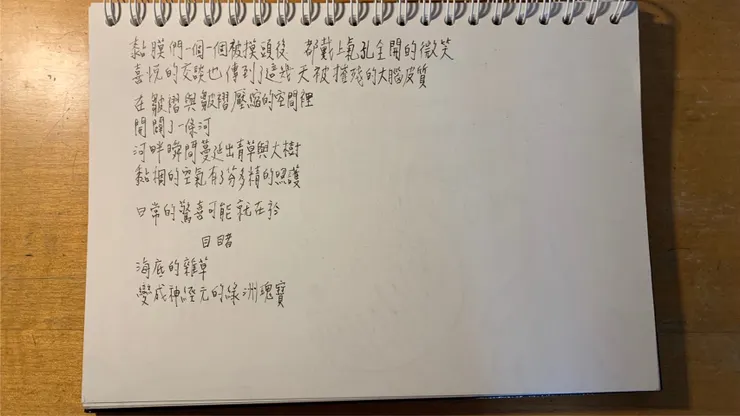 黏膜們一個一個被摸頭後 都戴上氣孔全開的微笑
喜悅的交談也傳到了這幾天被摧殘的大腦皮質
在皺褶與皺褶壓縮的空間裡
開闢了一條河
河畔瞬間蔓延出青草與大樹
黏稠的空氣有了芬多精的照護
日常的驚喜可能就在於
目睹
海底的雜草
變成神經元的綠洲瑰寶